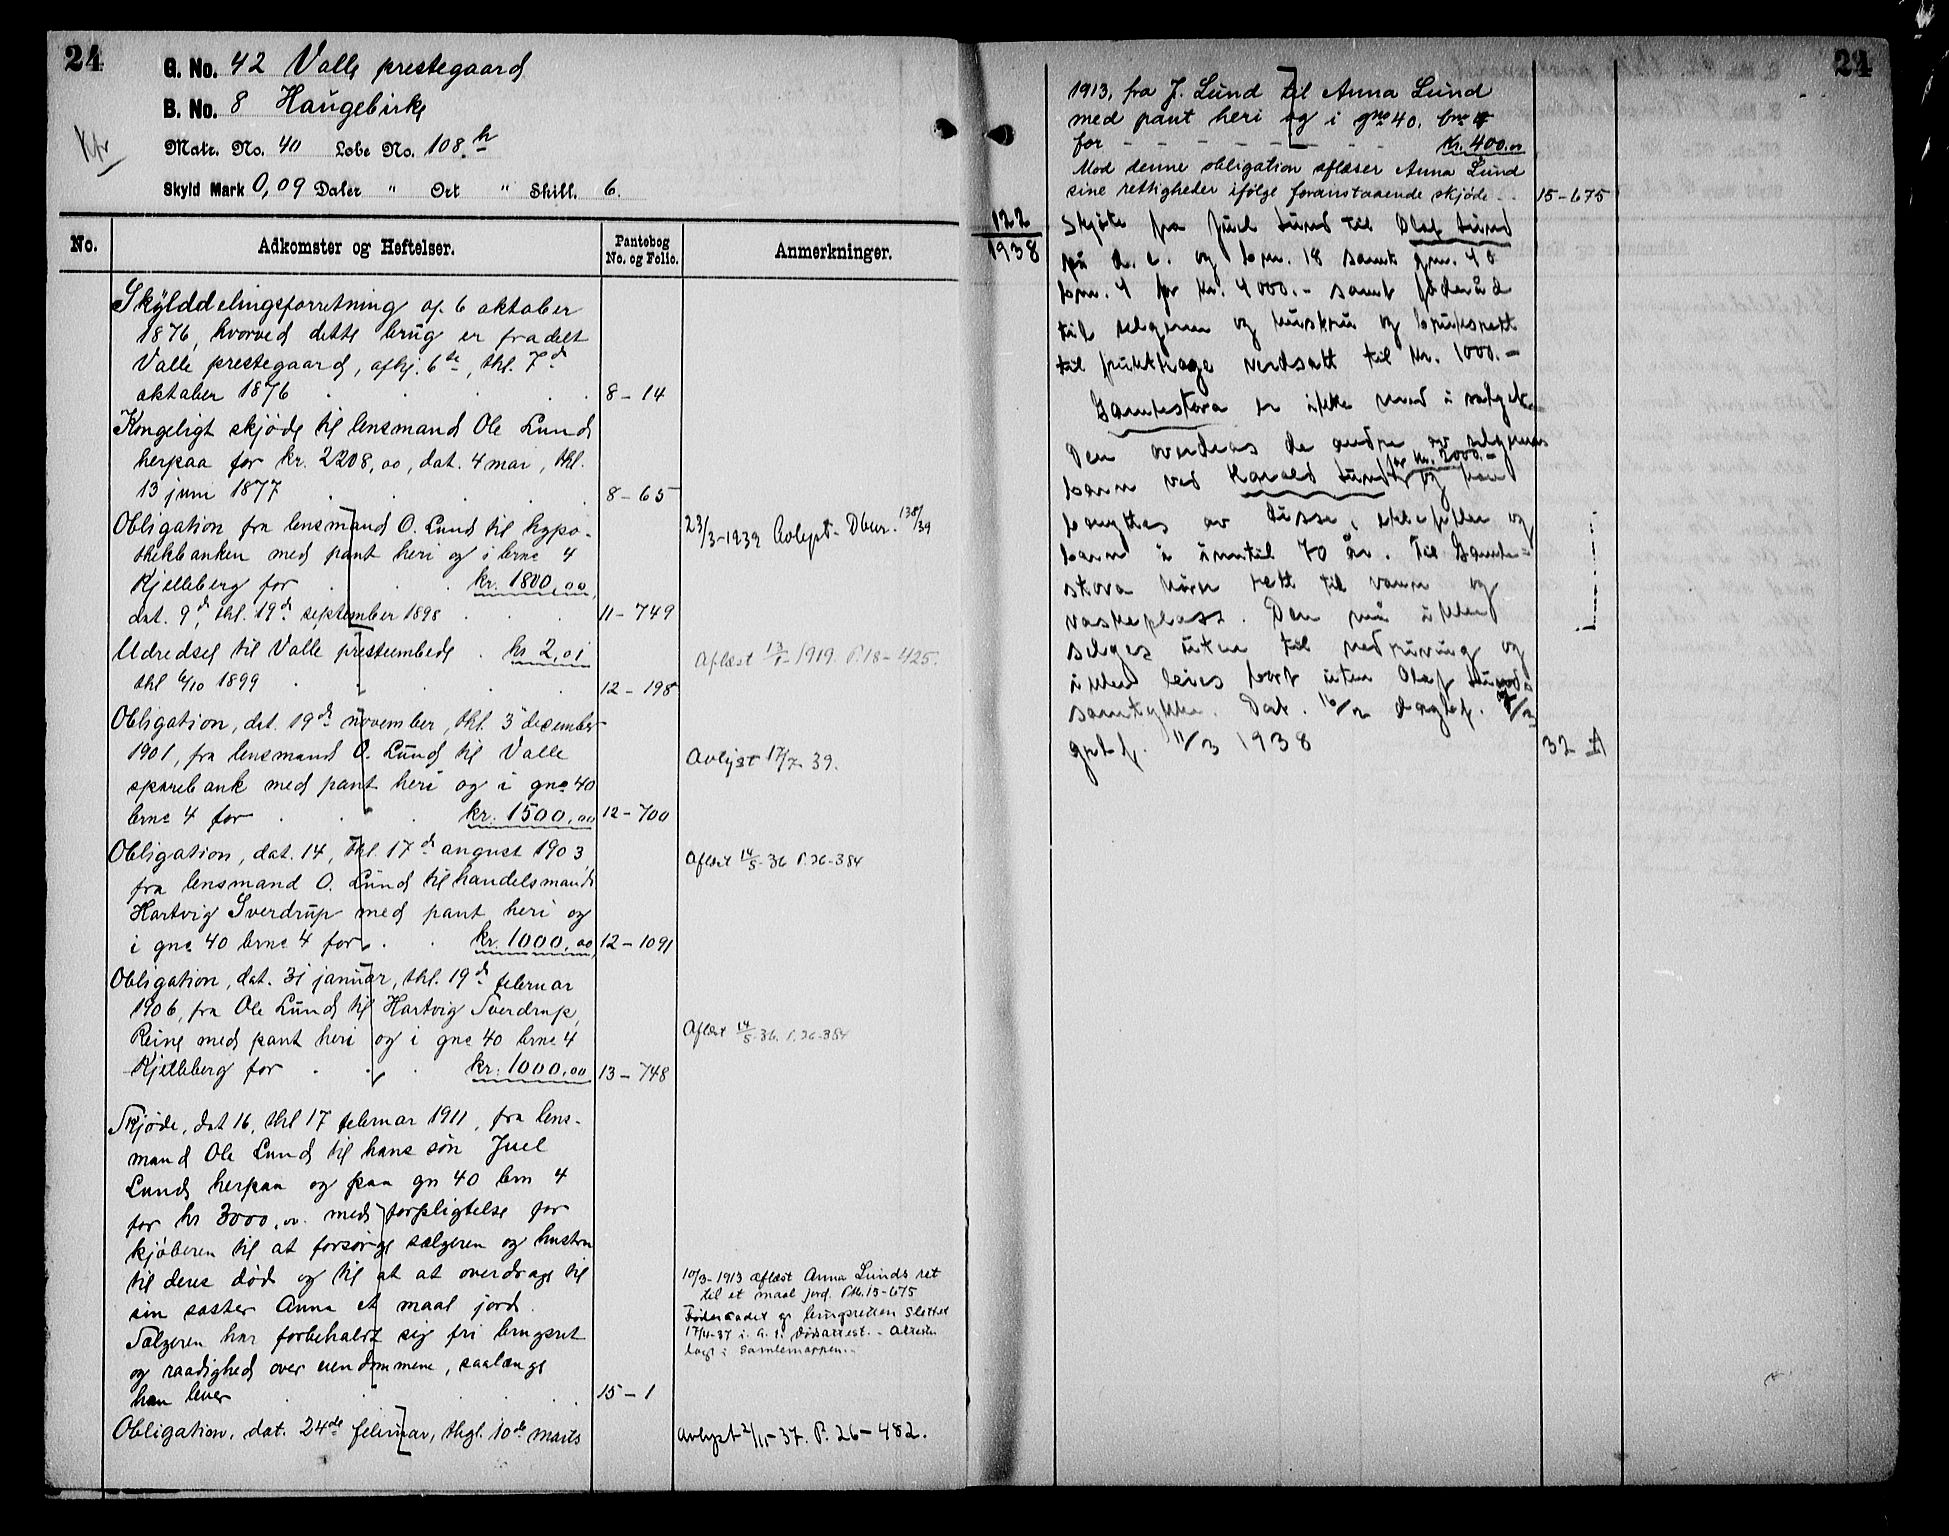 24
G. No. 42 Valle prestegaard
B. No. 8 Haugebirke
Matr. No. 40 Løbe No. 108 h
Skyld Mark 0,09 Daler " Ort " Skill. 6.
No.
Adkomster og Heftelser.
Pantebog
No. og Folio.
Anmerkninger.
Skylddelingsforretning af 6 oktober
1876, hvorved dette brug er fradelt
Valle prestegaard, afhj. 6te, thl. 7d
oktober 1876 8-14
Kongeligt skjøde til lensmand Ole Lund
herpaa for kr. 2208,00, dat. 4 mai, thl.
13 juni 1877 8-65
Obligation fra lensmand O. Lund til hypo-
thekbanken med pant heri og i brno 4
Kjelleberg for kr. 1800,00
dat. 9d, thl. 19d september 1898 11-749
23/3-1939 Avlyst. Dbnr. 138/39
Udredsel til Valle presteembede kr 2,01
thl 6/10 1899 12-198
Aflæst 13/1-1919. P.18-425.
Obligation, dat. 19de november, thl. 3 desember
1901, fra lensmand O. Lund til Valle
sparebank med pant heri og i gno 40
brno 4 for kr. 1500,00 12-700
Avlyst 17/7 39.
Obligation, dat. 14, thl. 17de august 1903,
fra lensmand O. Lund til handelsmand
Hartvig Sverdrup med pant heri og
i gno 40 brno 4 for kr. 1000,00 12-1091
Aflæst 14/5-36 P.26-384
Obligation, dat. 31 januar, thl. 19de februar
1906, fra Ole Lund til Hartvig Sverdrup,
Reine med pant heri og i gno 40 brno 4
Kjelleberg for kr. 1000,00 13-748
Aflæst 14/5-36. P.26-384
Skjøde, dat 16, thl 17 februar 1911, fra lens-
mand Ole Lund til hans søn Juel
Lund herpaa og paa gn 40 brn 4
for kr 3000,00. med forpligtelse for
kjøberen til at forsørge sælgeren og hustru
til deres død og til at at overdrage til
sin søster Anna et maal jord.
Sælgeren har forbeholdt sig fri brugsret
og raadighed over eiendommene, saalænge
han lever 15-1
10/3-1913 aflæst Anna Lunds ret
til et maal jord. Ptb. 15-675
Føderaadet og brugsretten slettet
17/4-37 i. h. t. dødsattest. - Attesten
lagt i samlemappen.
Obligation, dat. 24de februar, thgl. 10de marts
Avlyst 2/11-37. P. 26-482.
24
1913, fra J. Lund til Anna Lund
med pant heri og i gno 40. brno 4
for - - - - - - - kr. 400.00
Mod denne obligation aflæser Anna Lund
sine rettigheder ifølge foranstaaende skjøde - 15-675
122
1938
Skjøte fra Juel Lund til Olaf Lund
på d. e. og bnr. 18 samt gnr. 40
bnr. 4 for kr. 4000.- samt føderåd
til selgeren og huskrue og bruksrett
til frukthage verdsatt til kr. 1000.-
Gamlestova er ikke med i salget.
Den overdras de andre av selgerens
for kr. 2000.-
barn ved Harald Lund og kan
benyttes av disse, ektefeller og
barn i inntil 70 år. Til Gamle-
stova hører rett til vann og
vaskeplass. Den må ikke
selges uten til nedriving og
ikke leies bort uten Olaf Lunds
samtykke. Dat. 16/2 dagbf. 9/3
grbf. 11/3 1938 32 A